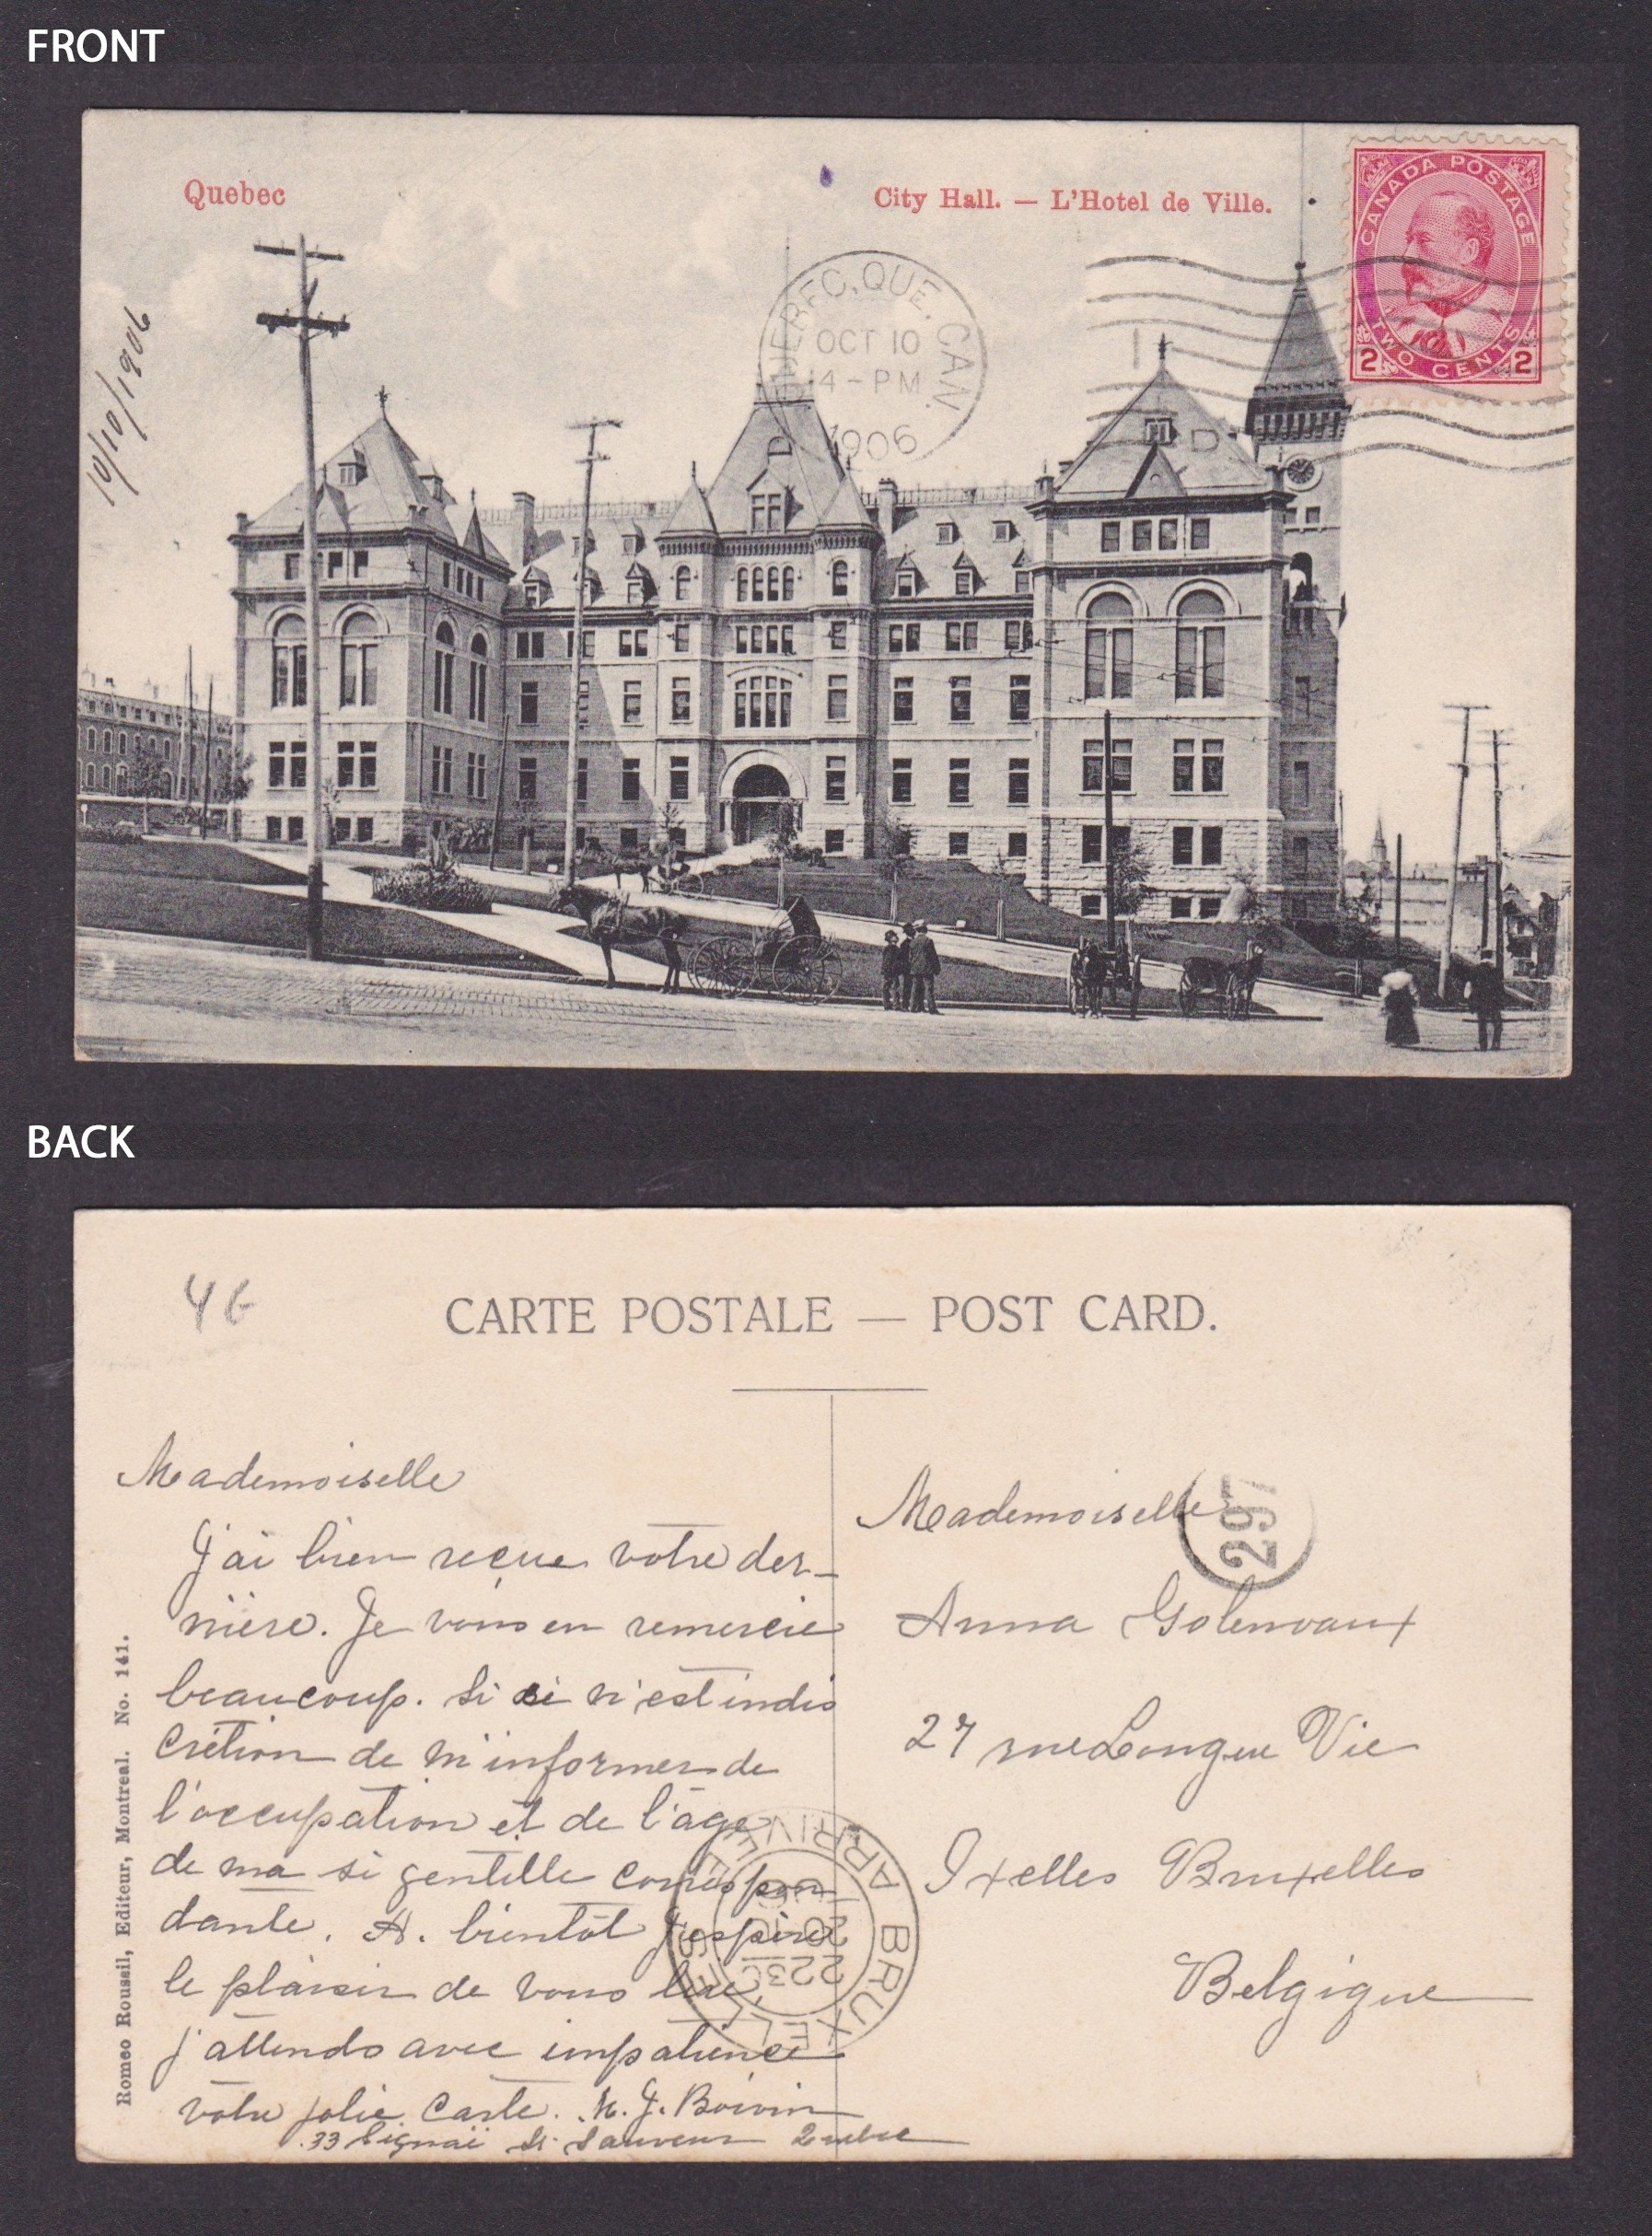 FRONT
Quebec
City Hall. — L'Hotel de Ville.
CANADA POSTAGE
TWO CENTS
2 2
QUEBEC, QUE. CAN.
OCT 10
4-PM
1906
D
10/10/1906
BACK
46
CARTE POSTALE — POST CARD.
Mademoiselle
J'ai bien reçue votre der-
nière. Je vous en remercie
beaucoup. Si si n'est indis
crétion de m'informer de
l'occupation et de l'âge
de ma si gentille correspon
dante. A. bientôt j'espère
le plaisir de vous lire,
j'attends avec impatience
votre jolie carte. J. Boivin
33 Signaï St. Sauveur Quebec
Mademoiselle
297
Anna Golenvaux
27 rue Longue Vie
Ixelles Bruxelles
Belgique
BRUXELLES ARRIVEE
Romeo Roussil, Editeur, Montreal. No. 141.